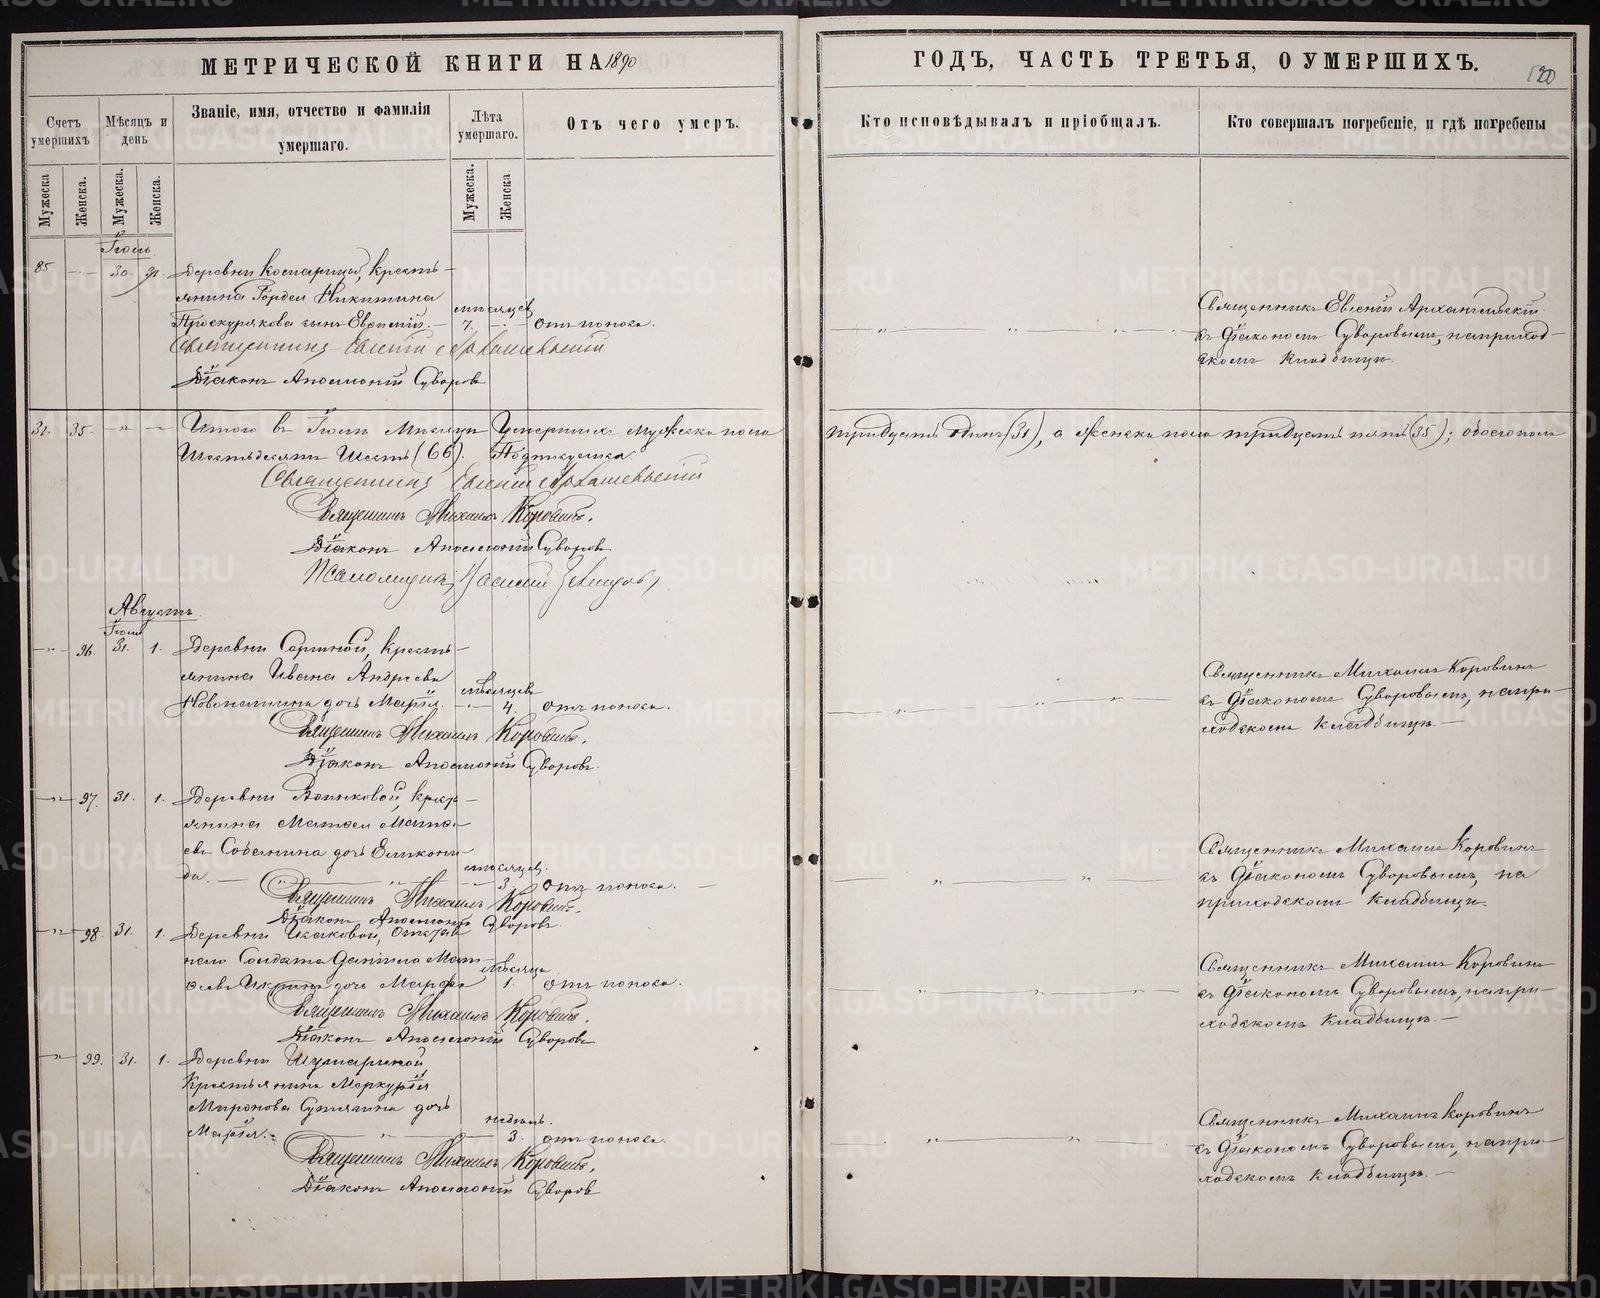 МЕТРИЧЕСКОЙ КНИГИ НА 1890
Счетъ умершихъ
Мѣсяцъ и день
Званіе, имя, отчество и фамилія умершаго.
Лѣта умершаго.
Отъ чего умеръ.
Мужеска
Женска.
Мужеска.
Женска.
Мужеска.
Женска
Іюль
85. 30. 31. Деревни крестьянина Гордея Никитина
Проскурякова сынъ Евгеній.
мѣсяцевъ
7. отъ поноса.
Священникъ Евгеній Архангельскій
Діаконъ Аполлоній Суворовъ
31. 35. Итого въ Іюлѣ Мѣсяцѣ Умершихъ мужеска пола
Шестьдесятъ Шесть (66).
Священникъ Евгеній Архангельскій
Священникъ Михаилъ Коровинъ.
Діаконъ Аполлоній Суворовъ
Псаломщикъ Василій
Августъ.
Іюль
96. 31. 1. Деревни крестьянина Ивана Андреева
дочь Марія.
мѣсяцевъ
4. отъ поноса.
Священникъ Михаилъ Коровинъ.
Діаконъ Аполлоній Суворовъ.
97. 31. 1. Деревни
дочь
мѣсяцевъ.
3 отъ поноса.
Священникъ Михаилъ Коровинъ.
Діаконъ Аполлоній Суворовъ.
98. 31. 1. Деревни
Солдата
дочь Марфа
мѣсяца
1. отъ поноса.
Священникъ Михаилъ Коровинъ.
Діаконъ Аполлоній Суворовъ
99. 31. 1. Деревни
Крестьянина Меркурія
Миронова дочь
Марія.
недѣль.
3. отъ поноса.
Священникъ Михаилъ Коровинъ.
Діаконъ Аполлоній Суворовъ
ГОДЪ, ЧАСТЬ ТРЕТЬЯ, О УМЕРШИХЪ.
120
Кто исповѣдывалъ и пріобщалъ.
Кто совершалъ погребеніе, и гдѣ погребены
Священникъ Евгеній Архангельскій
съ Діакономъ Суворовымъ, на приход-
скомъ кладбищѣ.
тридцать одинъ (31), а женска пола тридцать пять (35); обоего пола
Священникъ Михаилъ Коровинъ
съ Діакономъ Суворовымъ, на при-
ходскомъ кладбищѣ.
Священникъ Михаилъ Коровинъ
съ Діакономъ Суворовымъ, на
приходскомъ кладбищѣ.
Священникъ Михаилъ Коровинъ
съ Діакономъ Суворовымъ, на при-
ходскомъ кладбищѣ.
Священникъ Михаилъ Коровинъ
съ Діакономъ Суворовымъ, на при-
ходскомъ кладбищѣ.
METRIKI.GASO-URAL.RU